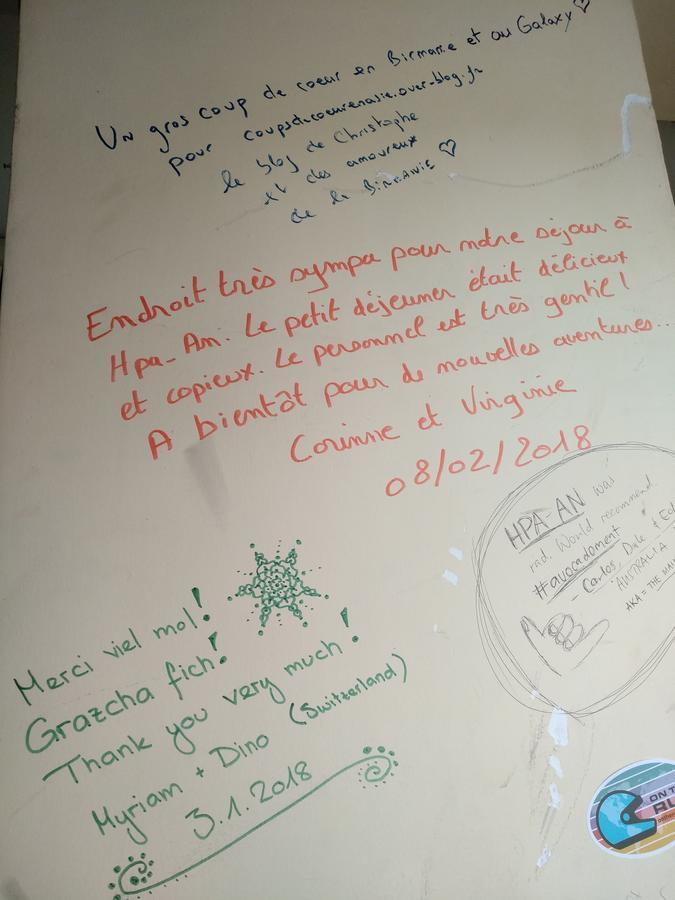 Un gros coup de coeur en Birmanie et au Galaxy ♡
pour coupsdecoeurenasie.over-blog.fr
le blog de Christophe
et des amoureux
de la BIRMANIE ♡
Endroit très sympa pour notre séjour à
Hpa-An. Le petit déjeuner était délicieux
et copieux. Le personnel est très gentil !
A bientôt pour de nouvelles aventures...
Corinne et Virginie
08/02/2018
HPA-AN was
rad. World recommend.
#avocadoment
- Carlos, Dale & Ed
AUSTRALIA
AKA = THE
Merci viel mol!
Grazcha fich!
Thank you very much!
Myriam + Dino (Switzerland)
3.1.2018
ON T